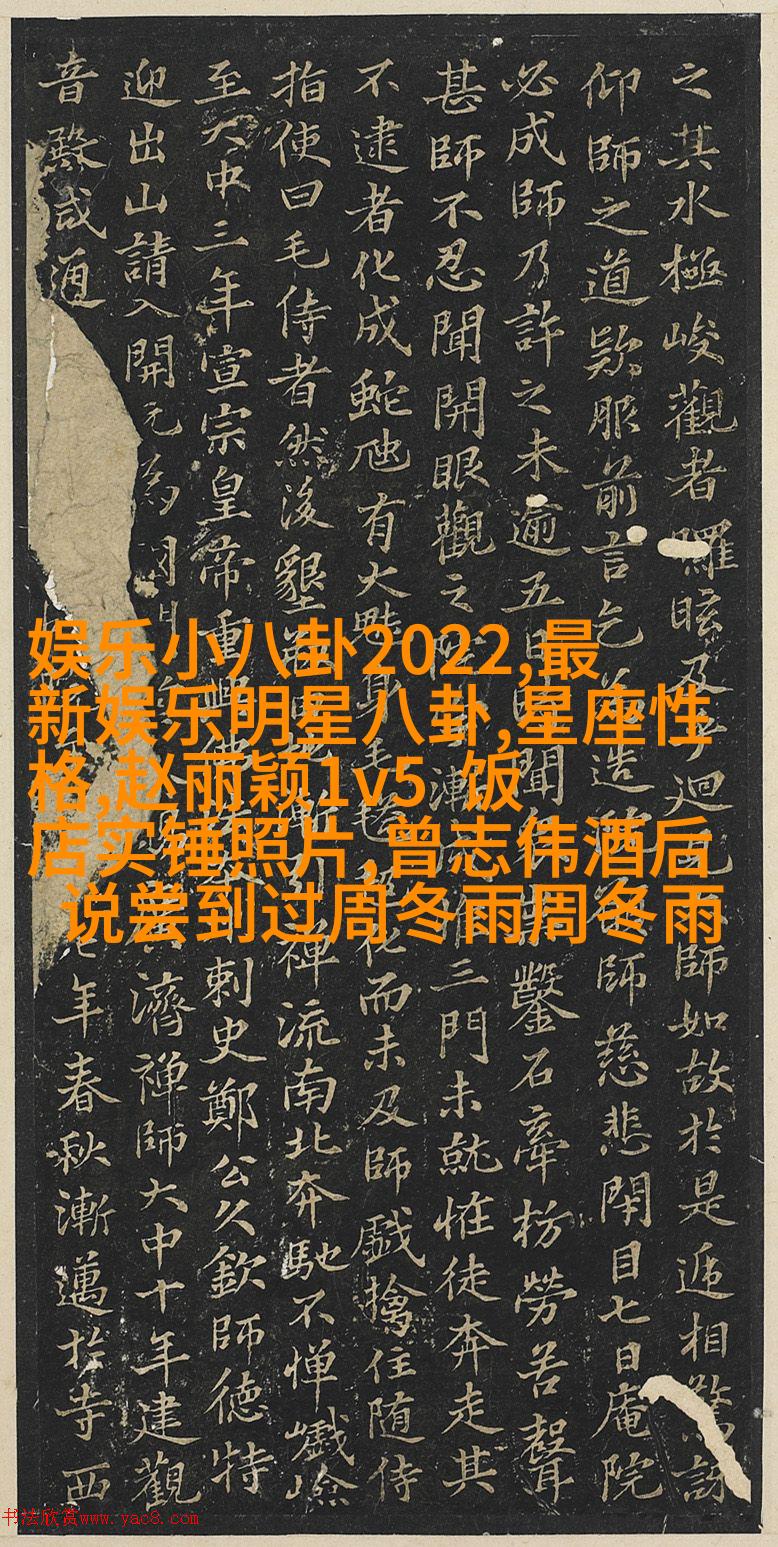 之其水極峻觀者眩及迴師如故於是遞相驚訝
仰師之道欵服前言乞造師慈悲閇目七日庵院
必成師乃許之未逾五日聞鑿石牽枋勞苦聲
甚師不忍聞開眼觀之漸作三門未就恠徒奔走其
不逮者化成蛇虺有大身毛化而未及師戲擒住随侍
指使曰毛侍者然後墾漸引禅流南北奔馳不憚巇嶮
至大中三年宣宗皇帝重興佛刺史鄭公久欽師德特
迎出山請入開元為國濟禅師大中十年建觀
音殿咸通七年春秋漸邁於寺西
娱乐小八卦2022,最
新娱乐明星八卦,星座性
格,赵丽颖1v5 饭
店实锤照片,曾志伟酒后
说尝到过周冬雨周冬雨
书法欣赏www.yac8.com